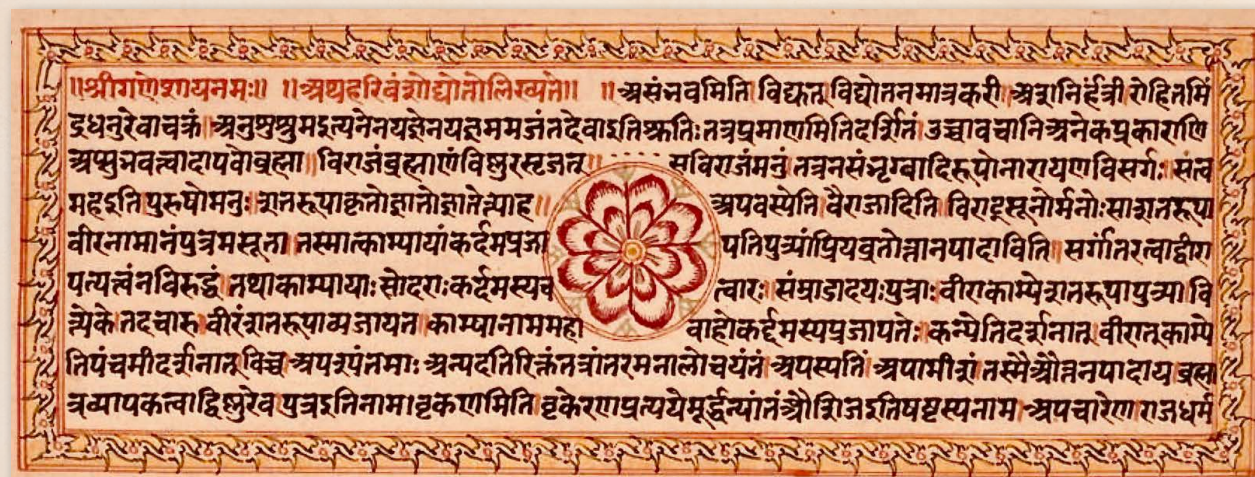 ॥श्रीगणेशायनमः॥ ॥अथहरिवंशोद्योतोलिख्यते॥ ॥असंभवमिति।विद्युत्।विद्योतनमात्रकरी।अशनिर्हंत्री।रोहितमिं
द्रधनुरेवाचक्रं।अनुशुश्रुमइत्यनेनयज्ञेनयज्ञममजंतदेवाइतिश्रुतिःतत्रप्रमाणमितिदर्शितं।उच्चावचानिअनेकप्रकाराणि
अप्सुभवत्वादापवोब्रह्मा॥विराजंब्रह्माणंविष्णुरसृजत्॥ सविराजंमनुं।तत्रनसंभृग्वादिरूपोनारायणविसर्गः।संत्व
महइतिपुरुषोमनुःशतरूपाकृतो ॥ अपवस्येति।वैराजादिति।विराट्सूनोर्मनोःसाशतरूपा
वीरनामानंपुत्रमसूता।तस्मात्काम्यायांकर्दमप्रजा पतिपुत्र्यांप्रियव्रतोत्तानपादाविति॥सर्गांतरत्वाद्वीरा
पत्यत्वंनविरुद्धं।तथाकाम्यायाःसोदराःकर्दमस्यच त्वारः।संम्राडादयःपुत्राःवीराकाम्येशतरूपापुत्र्यावि
त्येके।तदचारु।वीरंशतरूपाव्यजायत।काम्यानाममहा वाहोकर्द्दमस्यप्रजापतेः।कन्येतिदर्शनात्।वीरात्काम्ये
तिपंचमीदर्शनात्।विच्च।अपश्पंतेमाःअन्यदतिरिक्तंतत्रांतरमनालोचयंतं।अपस्पतिं।अपामीशं।तस्मैऔत्तनपादाय।ब्रह्म
त्रव्यापकत्वाद्विष्णुरेव।पुत्रइतिनाम।वृकणमिति।वृकेरणप्रत्ययेमूर्द्धन्यांतंऔशिजइतिषष्टस्यनाम।अपचारेणराजधर्म